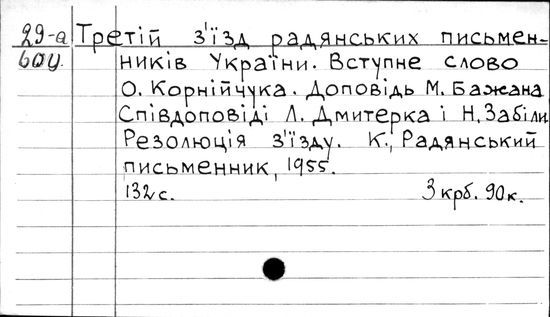 29-а Третій з'їзд радянських письмен-
ників України. Вступне слово
О. Корнійчука. Доповідь М. Бажана
Співдоповіді Л. Дмитерка і Н. Забіли
Резолюція з'їзду. К., Радянський
письменник, 1955.
132 с. 3 крб. 90 к.